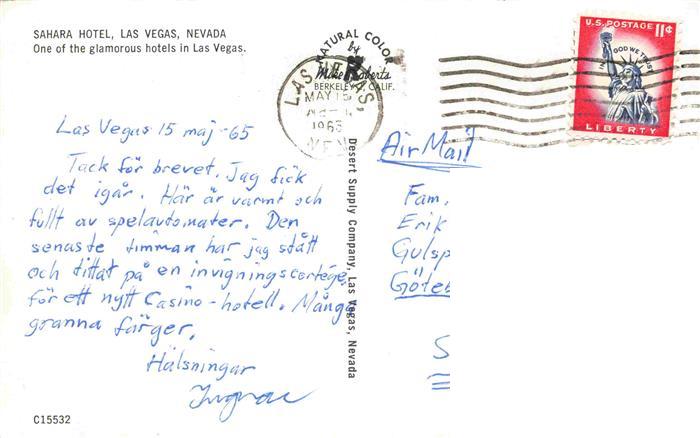 SAHARA HOTEL, LAS VEGAS, NEVADA
One of the glamorous hotels in Las Vegas.
NATURAL COLOR
by
Mike Roberts
BERKELEY 2, CALIF.
LAS VEGAS,
MAY 15
1965
NEV
U.S. POSTAGE 11¢
IN GOD WE TRUST
LIBERTY
Las Vegas 15 maj -65
Tack för brevet. Jag fick
det igår. Här är varmt och
fullt av spelautomater. Den
senaste timman har jag stått
och tittat på en invigningscortége
för ett nytt Casino-hotell. Många
granna färger.
Hälsningar
Desert Supply Company, Las Vegas, Nevada
Air Mail
Fam.
Erik
Gulsp
Göte
S
C15532